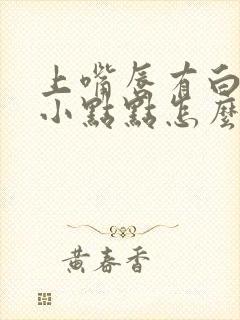 上嘴唇有白
小點點怎麼
黃春香